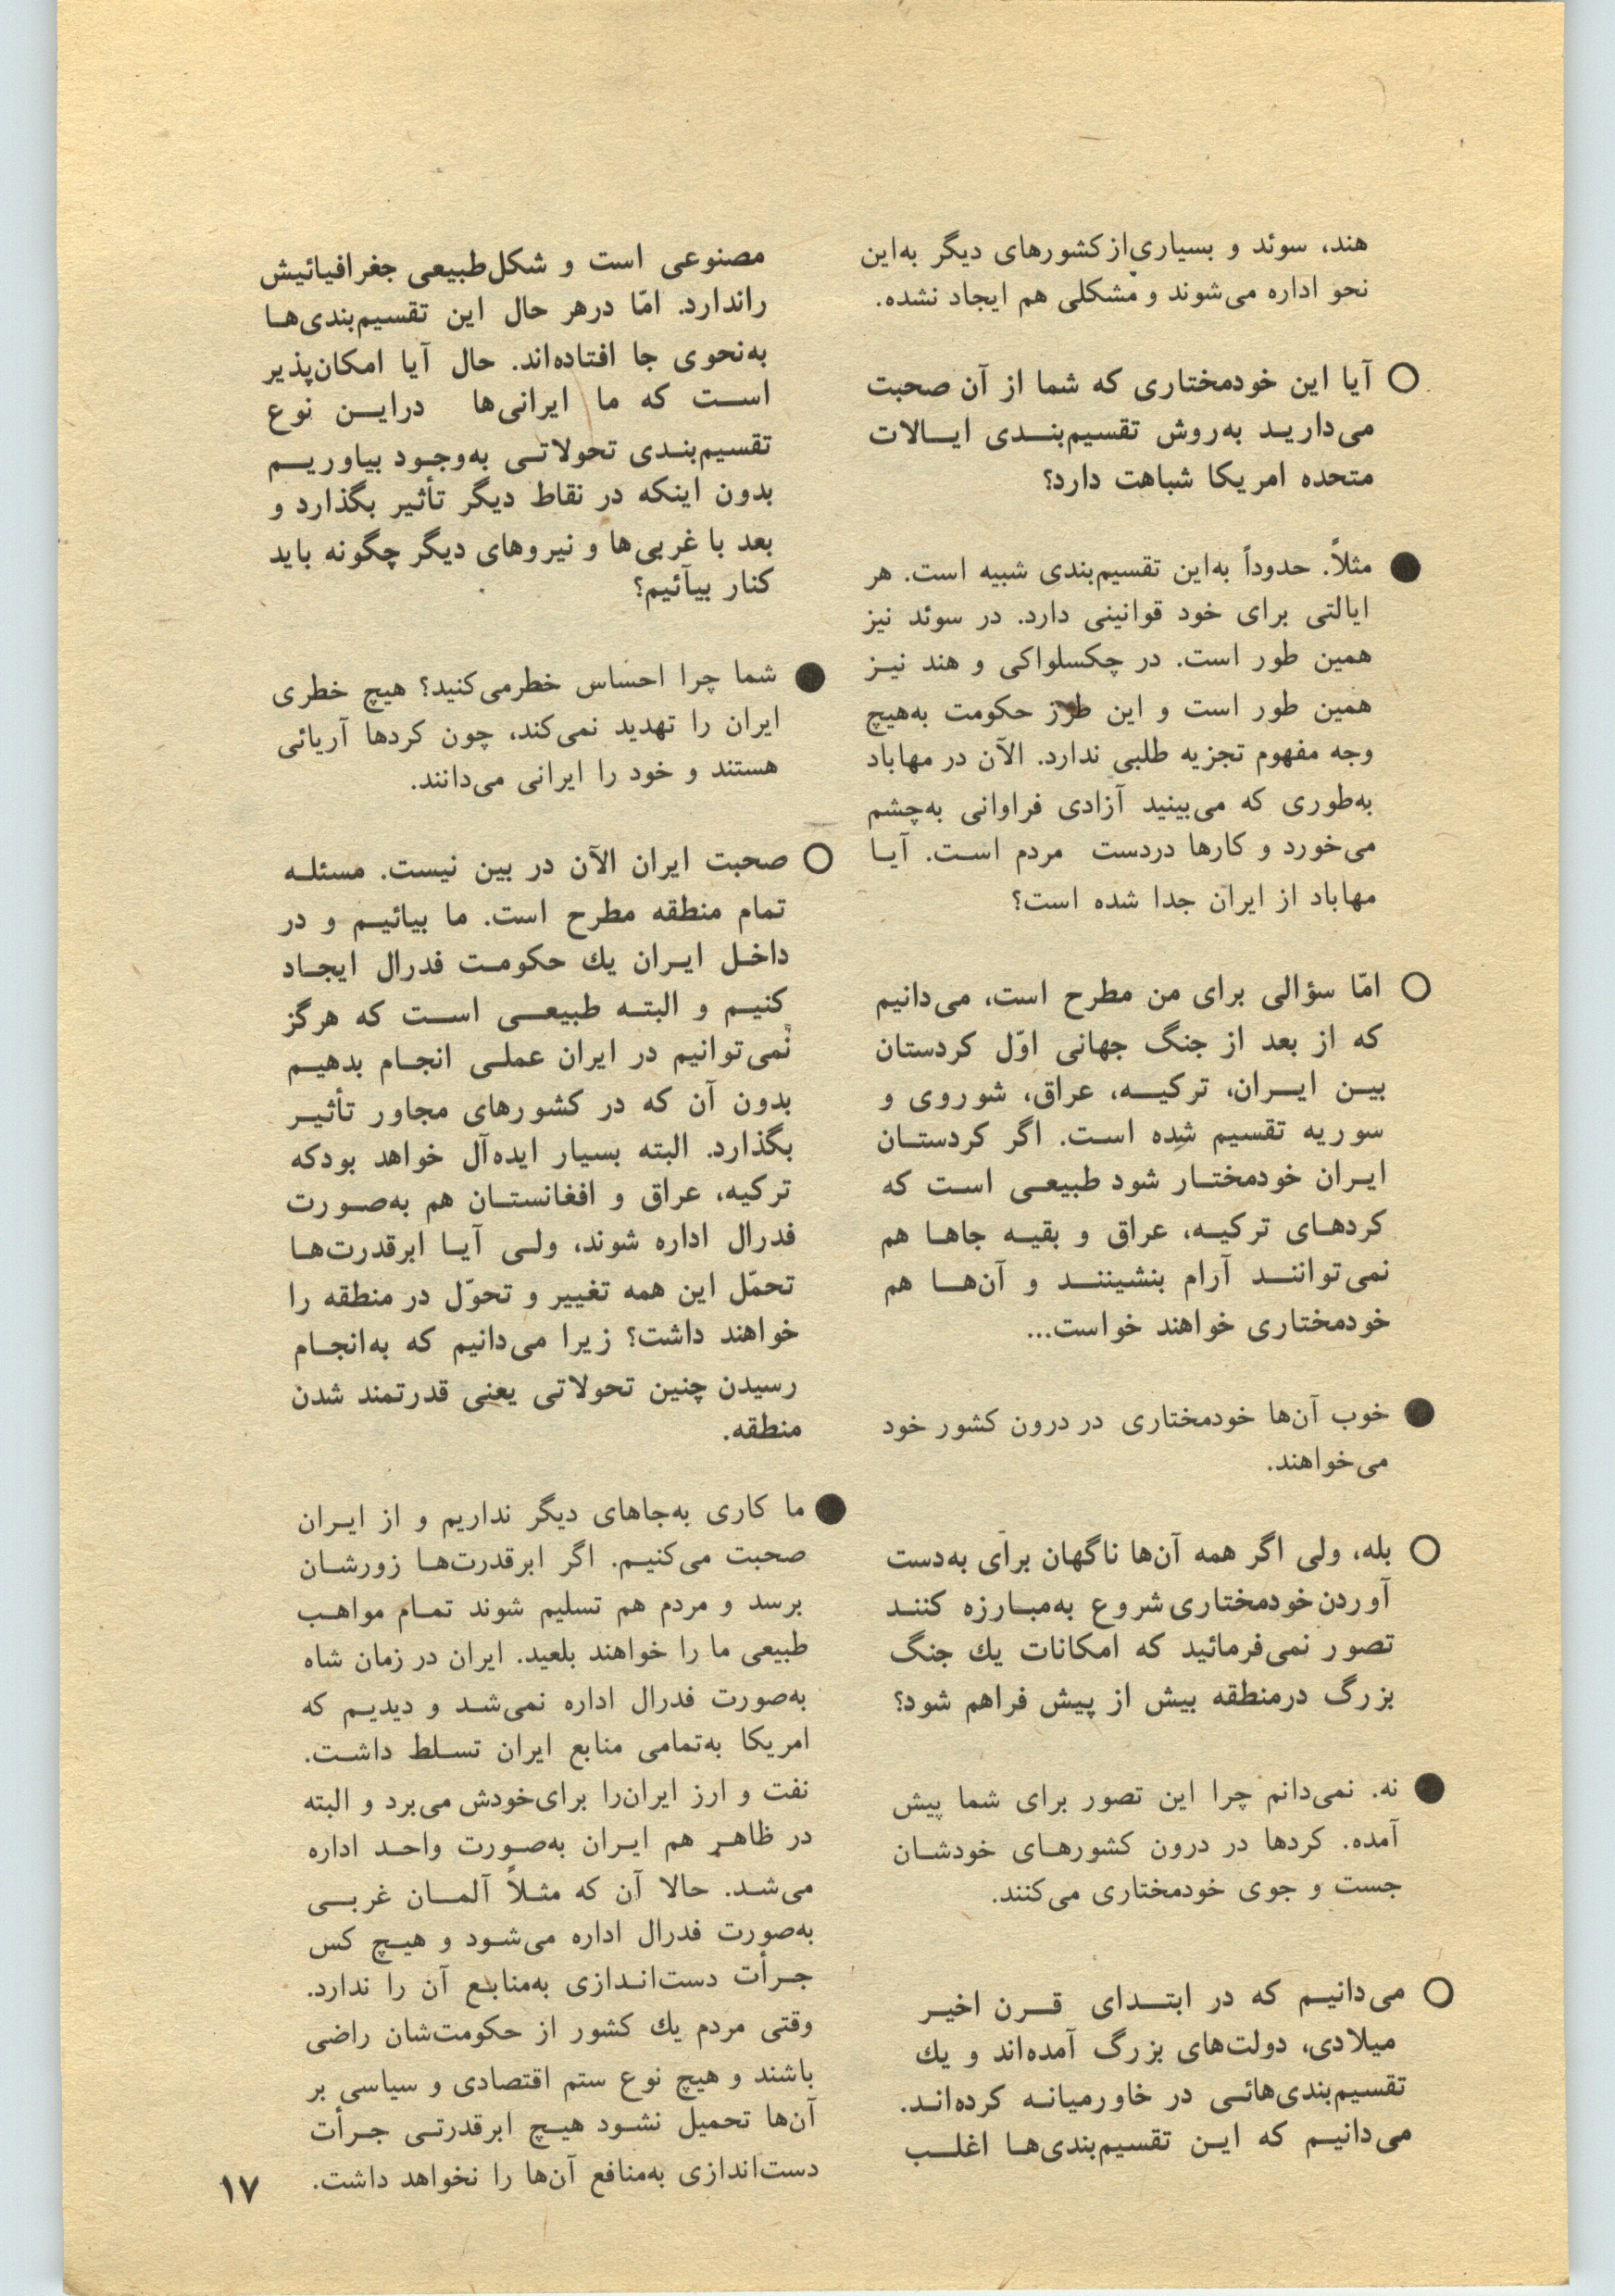 هند، سوئد و بسیاری از کشورهای دیگر به‌این
نحو اداره می‌شوند و مشکلی هم ایجاد نشده.
○ آیا این خودمختاری که شما از آن صحبت
می‌دارید به‌روش تقسیم‌بندی ایالات
متحده امریکا شباهت دارد؟
● مثلاً. حدوداً به‌این تقسیم‌بندی شبیه است. هر
ایالتی برای خود قوانینی دارد. در سوئد نیز
همین طور است. در چکسلواکی و هند نیز
همین طور است و این طرز حکومت به‌هیچ
وجه مفهوم تجزیه طلبی ندارد. الآن در مهاباد
به‌طوری که می‌بینید آزادی فراوانی به‌چشم
می‌خورد و کارها دردست مردم است. آیا
مهاباد از ایران جدا شده است؟
○ امّا سؤالی برای من مطرح است، می‌دانیم
که از بعد از جنگ جهانی اوّل کردستان
بین ایران، ترکیه، عراق، شوروی و
سوریه تقسیم شده است. اگر کردستان
ایران خودمختار شود طبیعی است که
کردهای ترکیه، عراق و بقیه جاها هم
نمی‌توانند آرام بنشینند و آن‌ها هم
خودمختاری خواهند خواست...
● خوب آن‌ها خودمختاری در درون کشور خود
می‌خواهند.
○ بله، ولی اگر همه آن‌ها ناگهان برای به‌دست
آوردن خودمختاری شروع به‌مبارزه کنند
تصور نمی‌فرمائید که امکانات یك جنگ
بزرگ درمنطقه بیش از پیش فراهم شود؟
● نه. نمی‌دانم چرا این تصور برای شما پیش
آمده. کردها در درون کشورهای خودشان
جست و جوی خودمختاری می‌کنند.
○ می‌دانیم که در ابتدای قرن اخیر
میلادی، دولت‌های بزرگ آمده‌اند و یك
تقسیم‌بندی‌هائی در خاورمیانه کرده‌اند.
می‌دانیم که این تقسیم‌بندی‌ها اغلب
مصنوعی است و شکل طبیعی جغرافیائیش
راندارد. امّا درهر حال این تقسیم‌بندی‌ها
به‌نحوی جا افتاده‌اند. حال آیا امکان‌پذیر
است که ما ایرانی‌ها دراین نوع
تقسیم‌بندی تحولاتی به‌وجود بیاوریم
بدون اینکه در نقاط دیگر تأثیر بگذارد و
بعد با غربی‌ها و نیروهای دیگر چگونه باید
کنار بیآئیم؟
● شما چرا احساس خطرمی‌کنید؟ هیچ خطری
ایران را تهدید نمی‌کند، چون کردها آریائی
هستند و خود را ایرانی می‌دانند.
○ صحبت ایران الآن در بین نیست. مسئله
تمام منطقه مطرح است. ما بیائیم و در
داخل ایران یك حکومت فدرال ایجاد
کنیم و البته طبیعی است که هرگز
نمی‌توانیم در ایران عملی انجام بدهیم
بدون آن که در کشورهای مجاور تأثیر
بگذارد. البته بسیار ایده‌آل خواهد بودکه
ترکیه، عراق و افغانستان هم به‌صورت
فدرال اداره شوند، ولی آیا ابرقدرت‌ها
تحمّل این همه تغییر و تحوّل در منطقه را
خواهند داشت؟ زیرا می‌دانیم که به‌انجام
رسیدن چنین تحولاتی یعنی قدرتمند شدن
منطقه.
● ما کاری به‌جاهای دیگر نداریم و از ایران
صحبت می‌کنیم. اگر ابرقدرت‌ها زورشان
برسد و مردم هم تسلیم شوند تمام مواهب
طبیعی ما را خواهند بلعید. ایران در زمان شاه
به‌صورت فدرال اداره نمی‌شد و دیدیم که
امریکا به‌تمامی منابع ایران تسلط داشت.
نفت و ارز ایران‌را برای‌خودش می‌برد و البته
در ظاهر هم ایران به‌صورت واحد اداره
می‌شد. حالا آن که مثلاً آلمان غربی
به‌صورت فدرال اداره می‌شود و هیچ کس
جرأت دست‌اندازی به‌منابع آن را ندارد.
وقتی مردم یك کشور از حکومت‌شان راضی
باشند و هیچ نوع ستم اقتصادی و سیاسی بر
آن‌ها تحمیل نشود هیچ ابرقدرتی جرأت
دست‌اندازی به‌منافع آن‌ها را نخواهد داشت.
۱۷